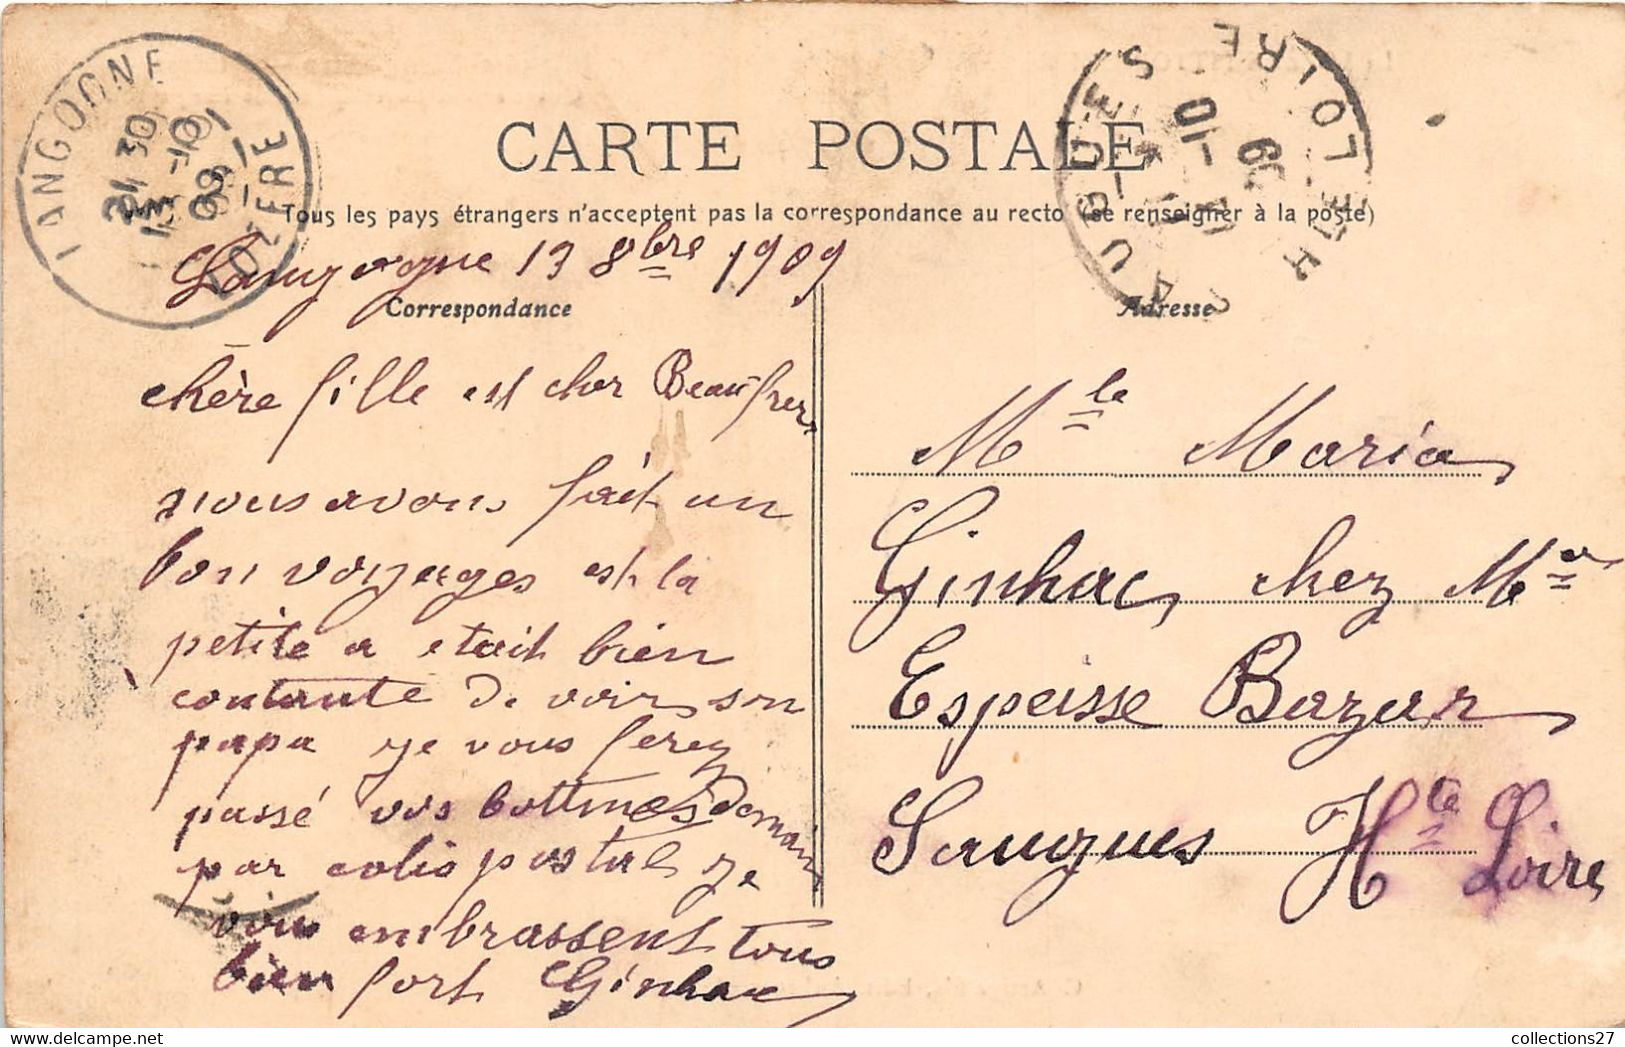 LANGOGNE
LOZÈRE
21 30
13 -10
09
SAUGUES
HTE LOIRE
-10
09
CARTE POSTALE
Tous les pays étrangers n'acceptent pas la correspondance au recto (se renseigner à la poste)
Langogne 13 8bre 1909
Correspondance
Adresse
chère fille est cher Beaufrer
nous avons fait un
bon voyages est la
petite a etait bien
contante de voir son
papa je vous ferez
passé vos bottines demain
par colis postal je
vous embrassent tous
bien fort Ginhac
Mlle Maria
Ginhac chez Mr
Espeisse Bazar
Saugues Hte Loire
collections27